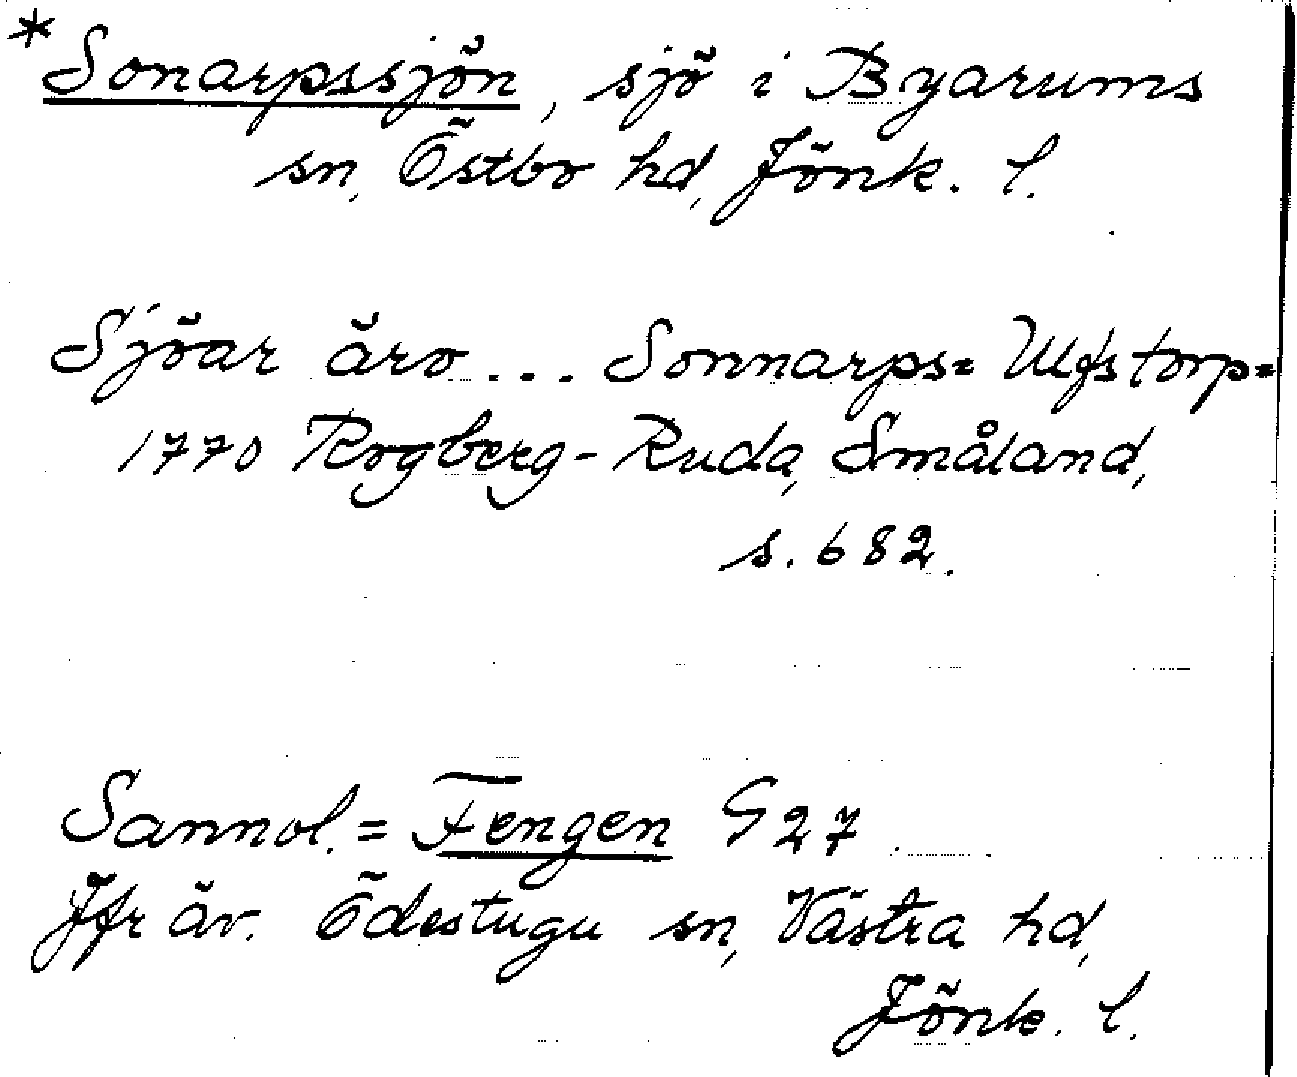 *Sonarpssjön, sjö i Byarums
sn, Östbo hd, Jönk. l.
Sjöar äro... Sonnarps= Ulfstorp=
1770 Rogberg-Ruda, Småland,
s. 682.
Sannol. = Fengen G27
Jfr äv. Ödestugu sn, Västra hd,
Jönk. l.